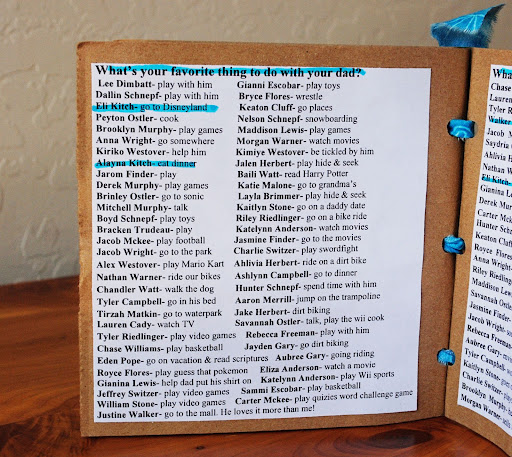 What's your favorite thing to do with your dad?
Lee Dimbatt- play with him
Dallin Schnepf- play with him
Eli Kitch- go to Disneyland
Peyton Ostler- cook
Brooklyn Murphy- play games
Anna Wright- go somewhere
Kiriko Westover- help him
Alayna Kitch- eat dinner
Jarom Finder- play
Derek Murphy- play games
Brinley Ostler- go to sonic
Mitchell Murphy- talk
Boyd Schnepf- play toys
Bracken Trudeau- play
Jacob Mckee- play football
Jacob Wright- go to the park
Alex Westover- play Mario Kart
Nathan Warner- ride our bikes
Chandler Watt- walk the dog
Tyler Campbell- go in his bed
Tirzah Matkin- go to waterpark
Lauren Cady- watch TV
Gianni Escobar- play toys
Bryce Flores- wrestle
Keaton Cluff- go places
Nelson Schnepf- snowboarding
Maddison Lewis- play games
Morgan Warner- watch movies
Kimiye Westover- be tickled by him
Jalen Herbert- play hide & seek
Baili Watt- read Harry Potter
Katie Malone- go to grandma's
Layla Brimmer- play hide & seek
Kaitlyn Stone- go on a daddy date
Riley Riedlinger- go on a bike ride
Katelynn Anderson- watch movies
Jasmine Finder- go to the movies
Charlie Switzer- play swordfight
Ahlivia Herbert- ride on a dirt bike
Ashlynn Campbell- go to dinner
Hunter Schnepf- spend time with him
Aaron Merrill- jump on the trampoline
Jake Herbert- dirt biking
Savannah Ostler- talk, play the wii cook
Tyler Riedlinger- play video games Rebecca Freeman- play with him
Chase Williams- play basketball Jayden Gary- go dirt biking
Eden Pope- go on vacation & read scriptures Aubree Gary- going riding
Royce Flores- play guess that pokemon Eliza Anderson- watch a movie
Gianina Lewis- help dad put his shirt on Katelynn Anderson- play Wii sports
Jeffrey Switzer- play video games Sammi Escobar- play basketball
William Stone- play video games Carter Mckee- play quizies word challenge game
Justine Walker- go to the mall. He loves it more than me!
Wha
Chase
Lauren
Tyler R
Walker
Jacob M
Saydria
Ahlivia H
Nathan W
Eli Kitch-
Gianina L
Derek Mur
Carter Mck
Hunter Schn
Keaton Cluff
Royce Flores
Anna Wright-
Riley Riedling
Maddison Lew
Savannah Ostl
Jasmine Finder-
Jacob Wright-
Rebecca Freema
William Stone-
Aubree Gary-
Tyler Campbell
Kaitlyn Stone-
Charlie Switzer-
Brooklyn Murphy-
Morgan Warner-